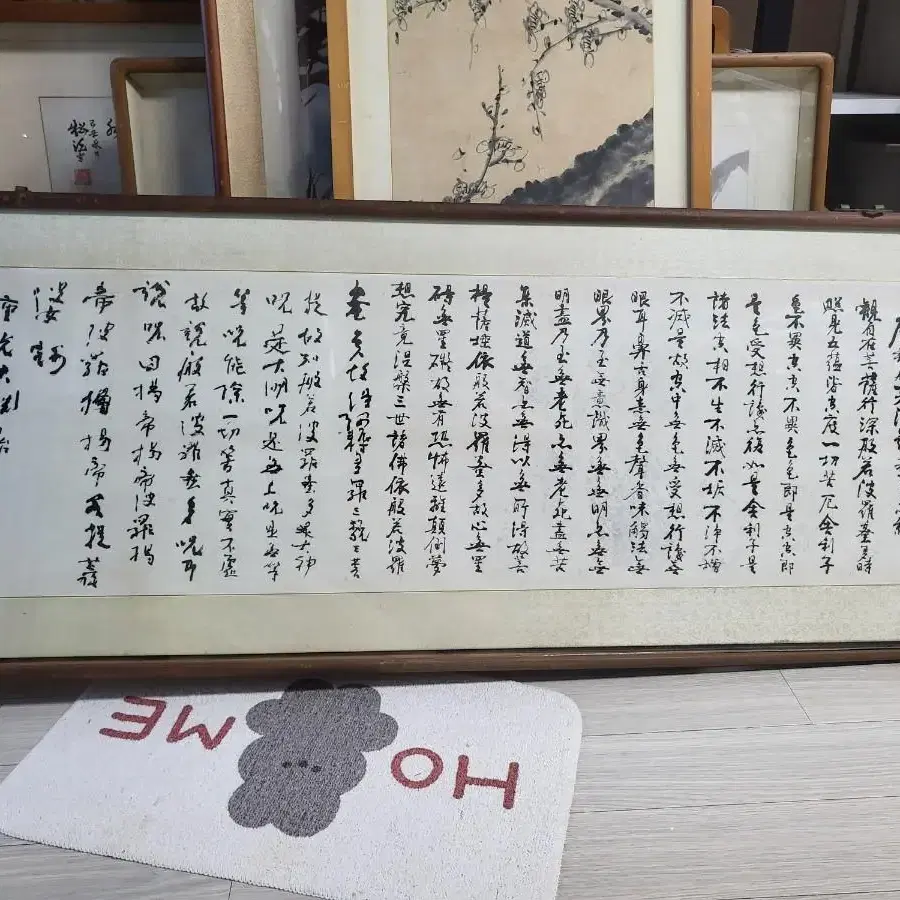 觀自在菩薩行深般若波羅蜜多時
照見五蘊皆空度一切苦厄舍利子
色不異空空不異色色即是空空即
是色受想行識亦復如是舍利子是
諸法空相不生不滅不垢不淨不增
不減是故空中無色無受想行識無
眼耳鼻舌身意無色聲香味觸法無
眼界乃至無意識界無無明亦無無
明盡乃至無老死亦無老死盡無苦
集滅道無智亦無得以無所得故菩
提薩埵依般若波羅蜜多故心無罣
礙無罣礙故無有恐怖遠離顛倒夢
想究竟涅槃三世諸佛依般若波羅
蜜多故得阿耨多羅三藐三菩
提故知般若波羅蜜多是大神
呪是大明呪是無上呪是無等
等呪能除一切苦真實不虛
故說般若波羅蜜多呪即
說呪曰揭帝揭帝波羅揭
帝波羅僧揭帝菩提薩
婆訶
HOME